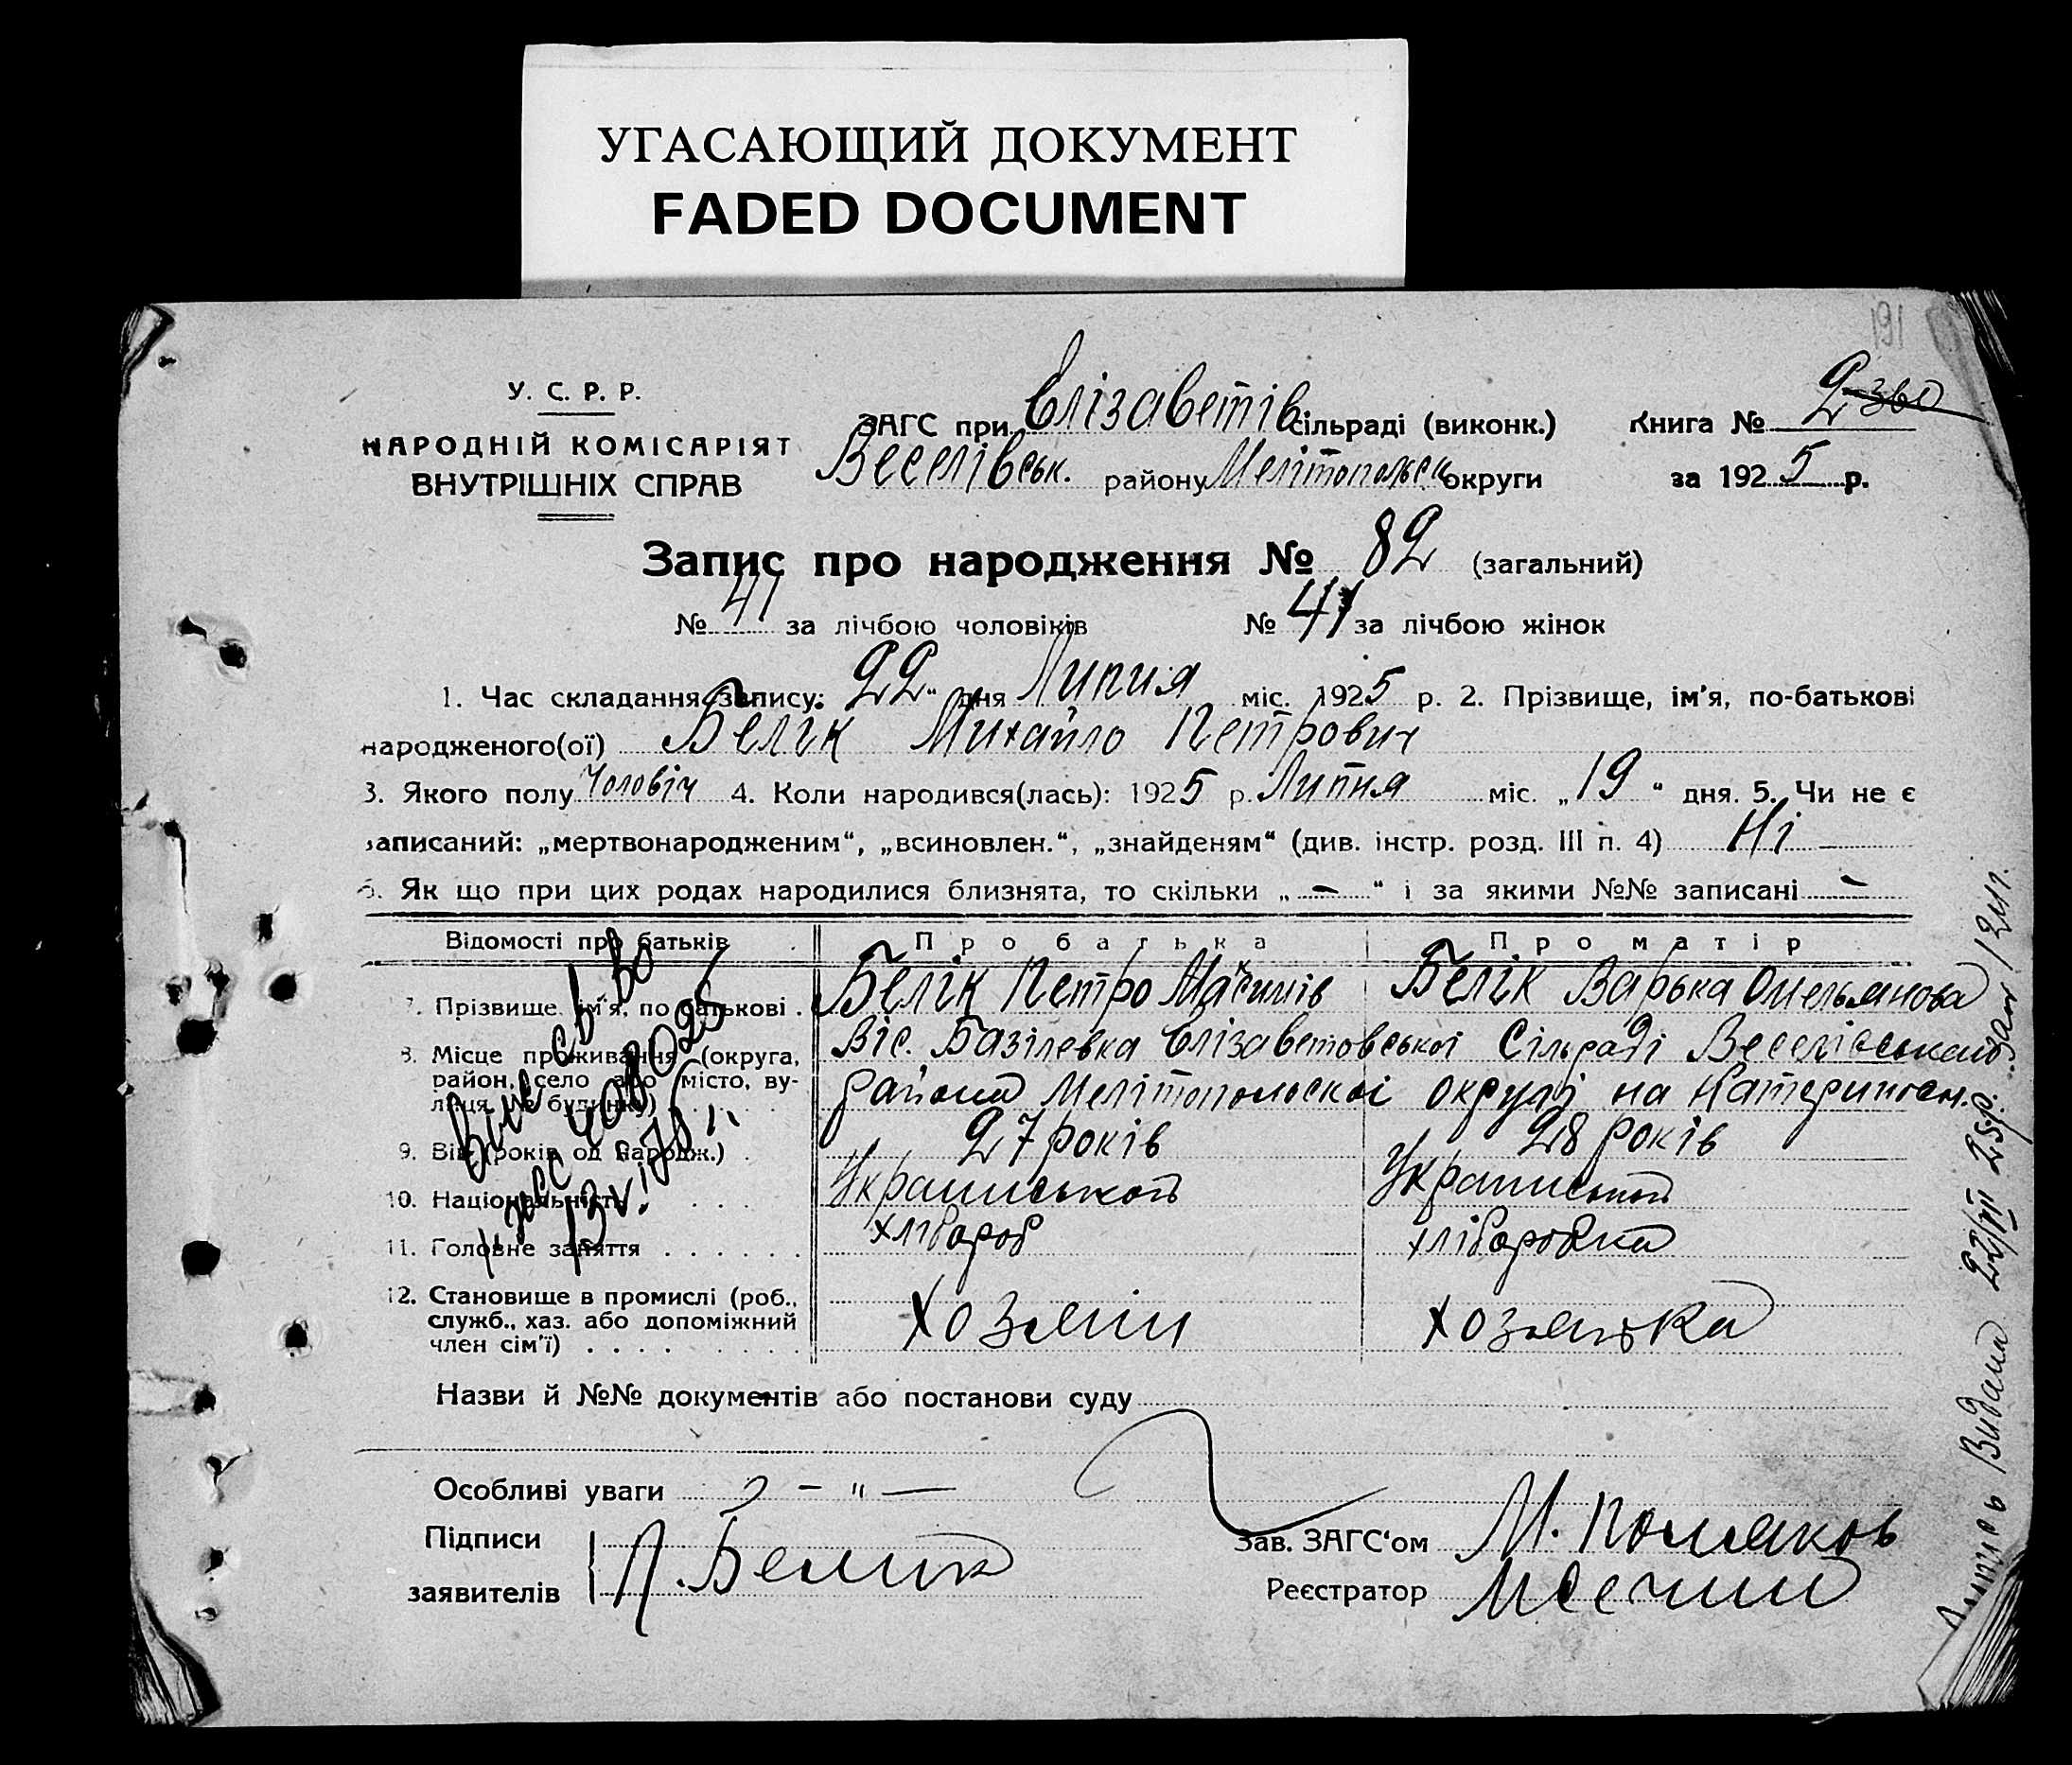 УГАСАЮЩИЙ ДОКУМЕНТ
FADED DOCUMENT
191
У. С. Р. Р.
НАРОДНІЙ КОМІСАРІЯТ
ВНУТРІШНІХ СПРАВ
ЗАГС при Єлізаветів сільраді (виконк.)
Веселівськ. району Мелітопольськ округи
Книга № 2
за 1925 р.
Запис про народження № 82 (загальний)
№ 41 за лічбою чоловіків № 41 за лічбою жінок
1. Час складання запису: 22 " дня Липня міс. 1925 р. 2. Прізвище, ім'я, по-батькові
народженого(ої) Белік Михайло Петрович
3. Якого полу Чоловіч 4. Коли народився(лась): 1925 р. Липня міс. „19 " дня. 5. Чи не є
записаний: „мертвонародженим", „всиновлен.", „знайденям" (див. інстр. розд. III п. 4) Ні
6. Як що при цих родах народилися близнята, то скільки „ — " і за якими №№ записані —
Відомості про батьків Про батька Про матір
7. Прізвище, ім'я, по батькові . Белік Петро Белік Варька Омельянова
8. Місце проживання (округа, район, село або місто, вулиця, № будинку) Віс. Базілевка Єлізаветовської Сільраді
Мелітопольскої округі на Катериносл.
9. Вік (років од народж.) . 27 років 28 років
10. Національність . . .
11. Головне заняття . . . . . . хлібороб хліборобка
12. Становище в промислі (роб., служб., хаз. або допоміжний член сім'ї) . . . . хозяїн хозяйка
Назви й №№ документів або постанови суду
Особливі уваги — " —
Підписи
заявителів П. Белик
Зав. ЗАГС'ом М. Поляков
Реєстратор
Видана 22/VII 25р.